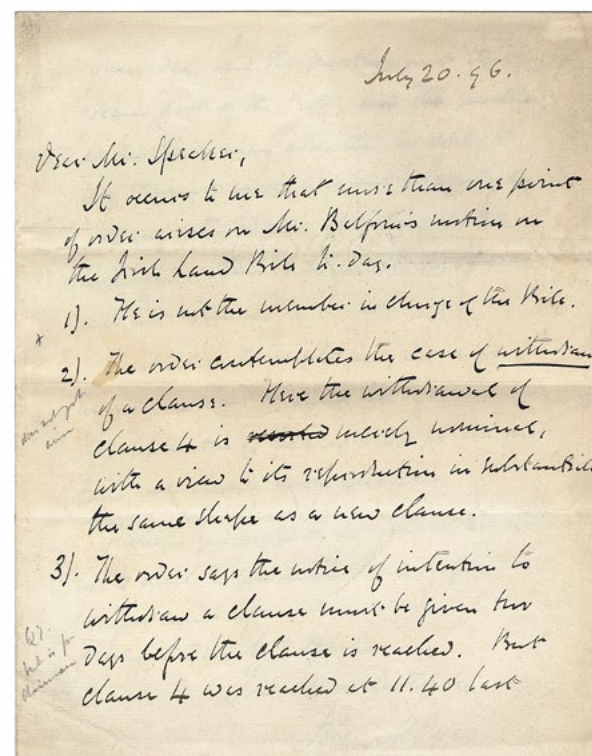 July 20. 96.
Dear Mr. Speaker,
It occurs to me that more than one point
of order arises on Mr. Balfour's motion on
the Irish Land Bill to-day.
1). He is not the member in charge of the Bill.
x
2). The order contemplates the case of withdrawal
of a clause. Here the withdrawal of
clause 4 is merely nominal,
with a view to its reproduction in substantially
the same shape as a new clause.
3). The order says the notice of intention to
withdraw a clause must be given two
days before the clause is reached. But
clause 4 was reached at 11.40 last
Q?
but is for
chairman